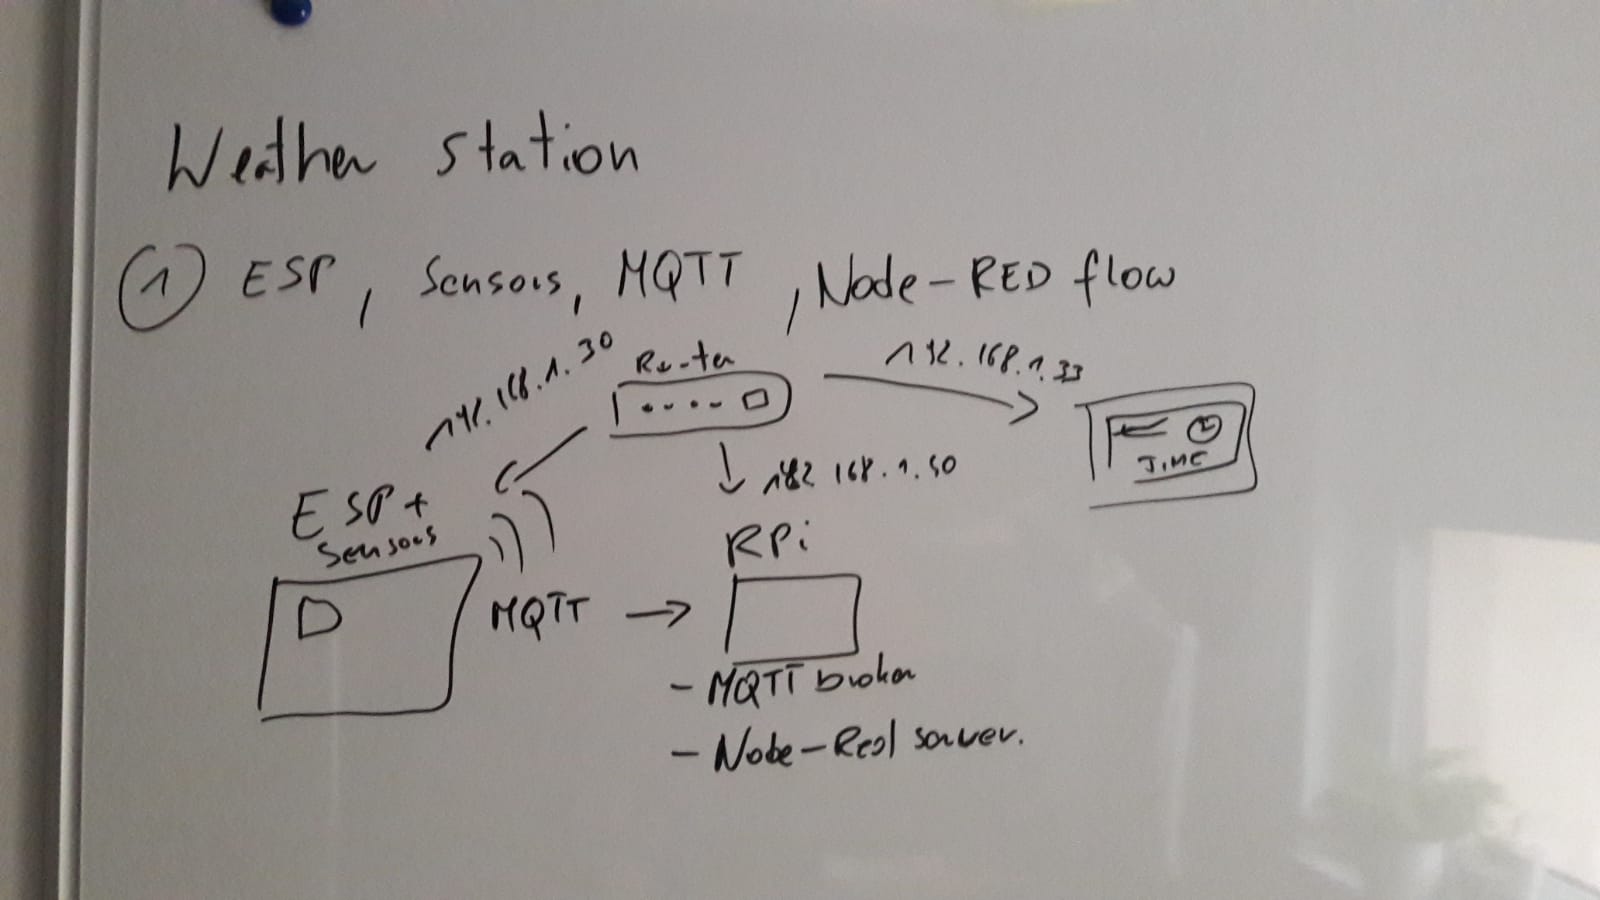 Weather station
① ESP, Sensors, MQTT, Node-RED flow
192.168.1.30
Router
192.168.1.33
TIME
192 168.1.50
ESP +
Sensors
RPi
MQTT →
- MQTT broker
- Node-Red server.